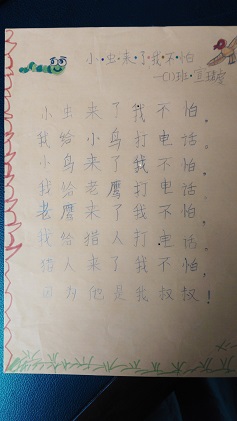 小·虫·来·了·我·不·怕
一(1)班·
小虫来了我不怕，
我给小鸟打电话。
小鸟来了我不怕，
我给老鹰打电话。
老鹰来了我不怕，
我给猎人打电话。
猎人来了我不怕，
因为他是我叔叔！